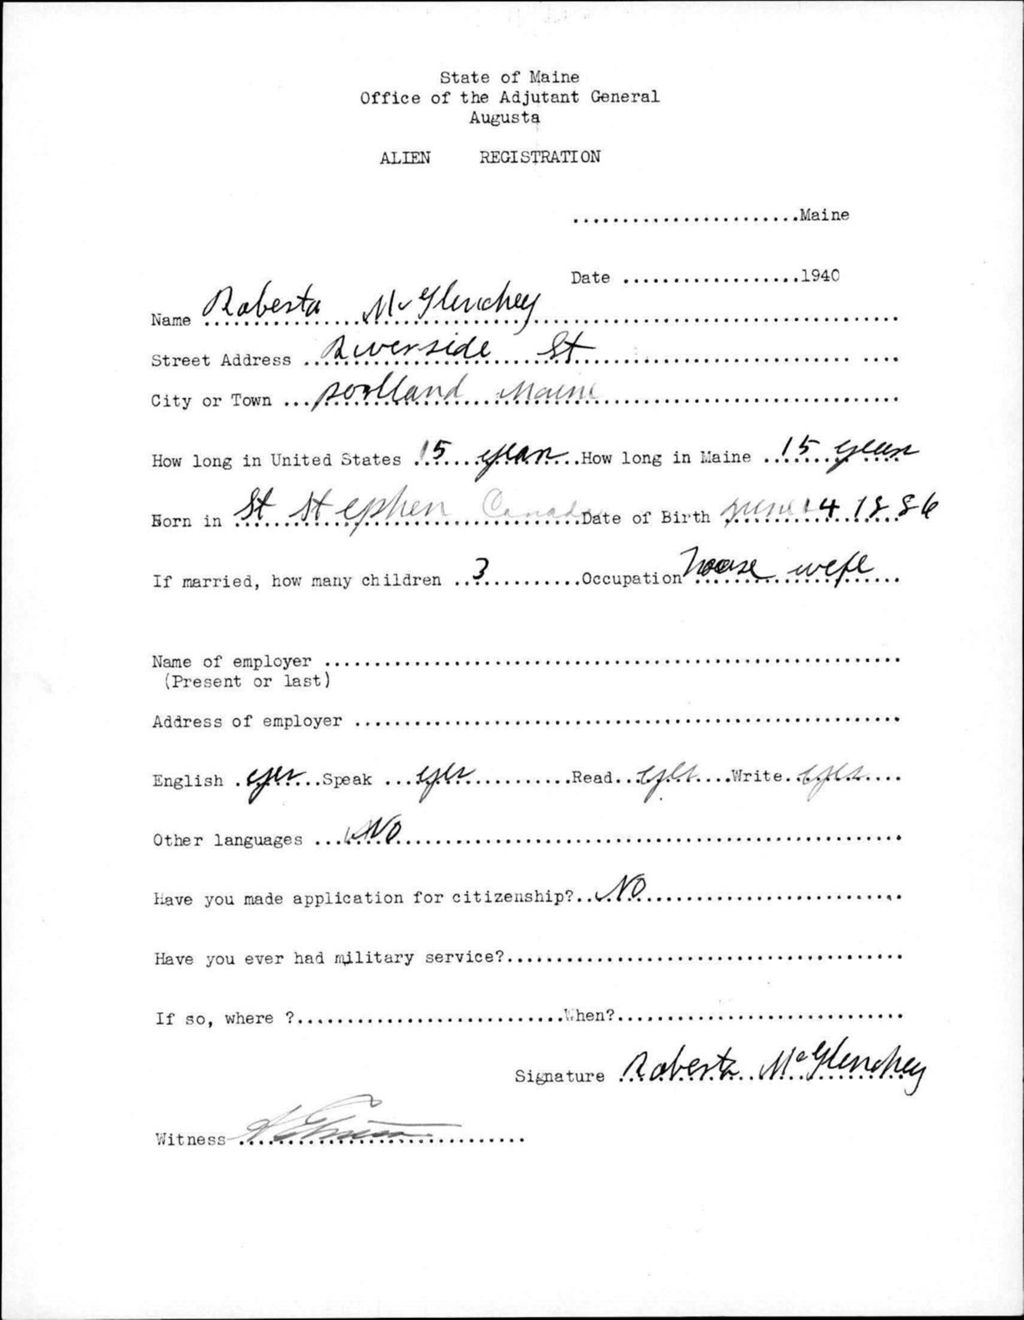 State of Maine
Office of the Adjutant General
Augusta
ALIEN REGISTRATION
.......................Maine
Date ..................1940
Name Roberta McGlinchey
Street Address Riverside St
City or Town Portland Maine
How long in United States 15 years How long in Maine 15 years
Born in St Stephen Canada Date of Birth June 14 1886
If married, how many children 3 Occupation house wife
Name of employer
(Present or last)
Address of employer
English yes Speak yes Read yes Write yes
Other languages No
Have you made application for citizenship? No
Have you ever had military service?
If so, where ? When?
Signature Roberta McGlinchey
Witness